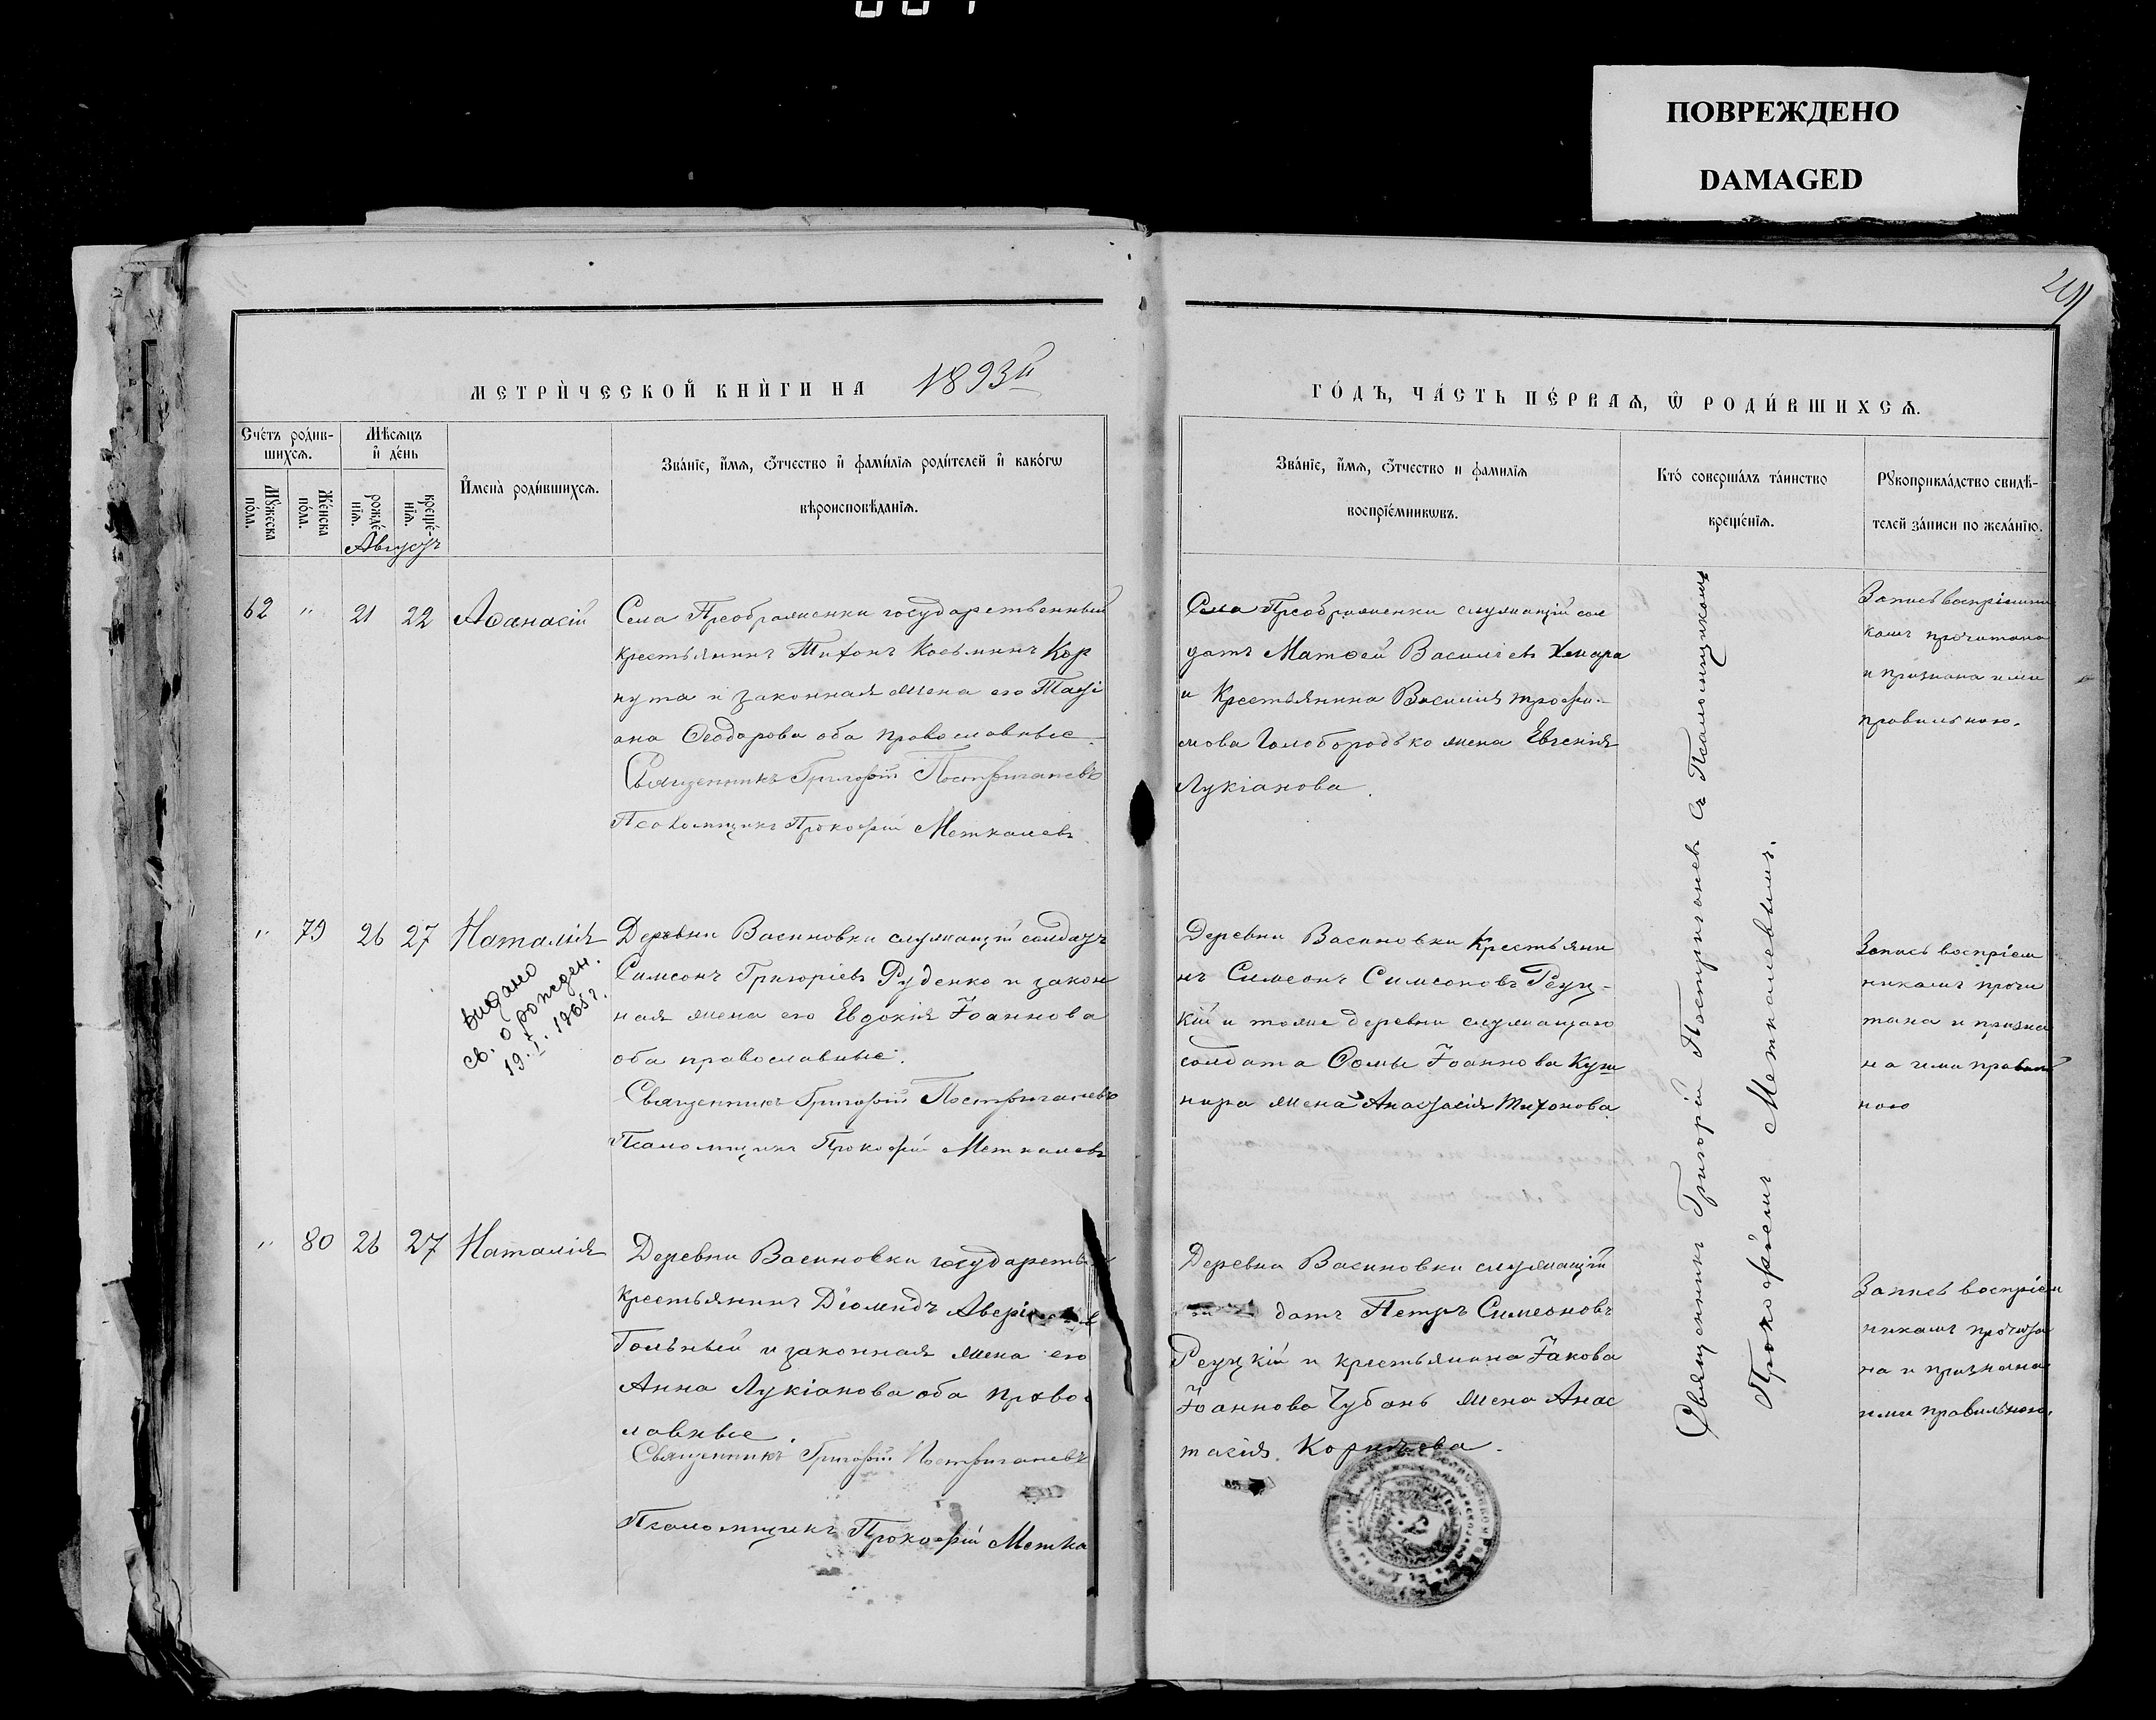 ПОВРЕЖДЕНО
DAMAGED
МЕТРИ́ЧЕСКОЙ КНИ́ГИ НА 1893й
ГО́ДЪ, ЧА́СТЬ ПЕ́РВАѦ, Ѽ РОДИ́ВШИХСѦ.
Сче́тъ роди́в-
шихсѧ.
Мꙋ́жеска по́ла.
Же́нска по́ла.
Мѣ́сѧцъ и҆ де́нь
рожде́-
нїѧ.
креще́-
нїѧ.
Августъ
И҆мена̀ роди́вшихсѧ.
Зва́нїе, и҆́мѧ, ѻ҆́тчество и҆ фами́лїѧ роди́телей и҆ како́гѡ
вѣроисповѣ́данїѧ.
Зва́нїе, и҆́мѧ, ѻ҆́тчество и фамилїѧ
воспрїе́мникѡвъ.
Кто́ соверша́лъ та́инство
креще́нїѧ.
Рꙋкоприкла́дство свидѣ́-
телей за́писи по жела́нїю.
62 " 21 22 Аѳанасій
Села Преображенки государственный
крестьянинъ Тихонъ Косьминъ Кор
нута и законная жена его Тати
ана Ѳеодорова оба православные
Священникъ Григорій Постригачевъ
Псаломщикъ Прокофій Меткалевъ
Села Преображенки служащій сол
датъ Матѳей Васильевъ Хмара
и Крестьянина Василія Трофи-
мова Голобородько жена Евгенія
Лукіанова.
Запись воспріемни
камъ прочитана
и признана ими
правильною.
" 79 26 27 Наталія
видано
св. о рожден.
19.I.1965г.
Деревни Васиновки служащій солдатъ
Симеонъ Григоріевъ Руденко и закон
ная жена его Евдокія Іоаннова
оба православные.
Священникъ Григорій Постригачевъ
Псаломщикъ Прокофій Меткалевъ
Деревни Васиновки Крестьяни
нъ Симеонъ Симеоновъ Реуц-
кій и тояже деревни служащаго
солдата Ѳомы Іоаннова Куш
нира жена Анастасія Тихонова.
Запись воспріем
никамъ прочи
тана и призна
на ими правиль
ною
" 80 26 27 Наталія
Деревни Васиновки государств
крестьянинъ Діомидъ
Гольный и законная жена его
Анна Лукіанова оба правос
лавные.
Священникъ Григорій Постригачевъ
Псаломщикъ Прокофій Метка
Деревни Васиновки служащій
датъ Петръ Симеоновъ
Реуцкій и крестьянина Іакова
Іоаннова Чубань жена Анас
тасія
Запись воспріем
никамъ прочита
на и признана
ими правильною.
Священникъ Григорій Постригачевъ съ Псаломщикомъ
Прокофіемъ Меткалевымъ.